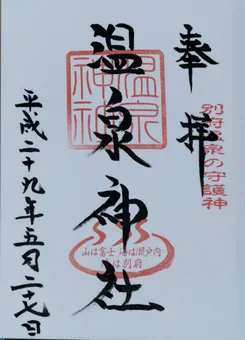 奉拝
別府温泉の守護神
温泉神社
山は富士 海は瀬戸内
湯は別府
平成二十九年五月二十七日